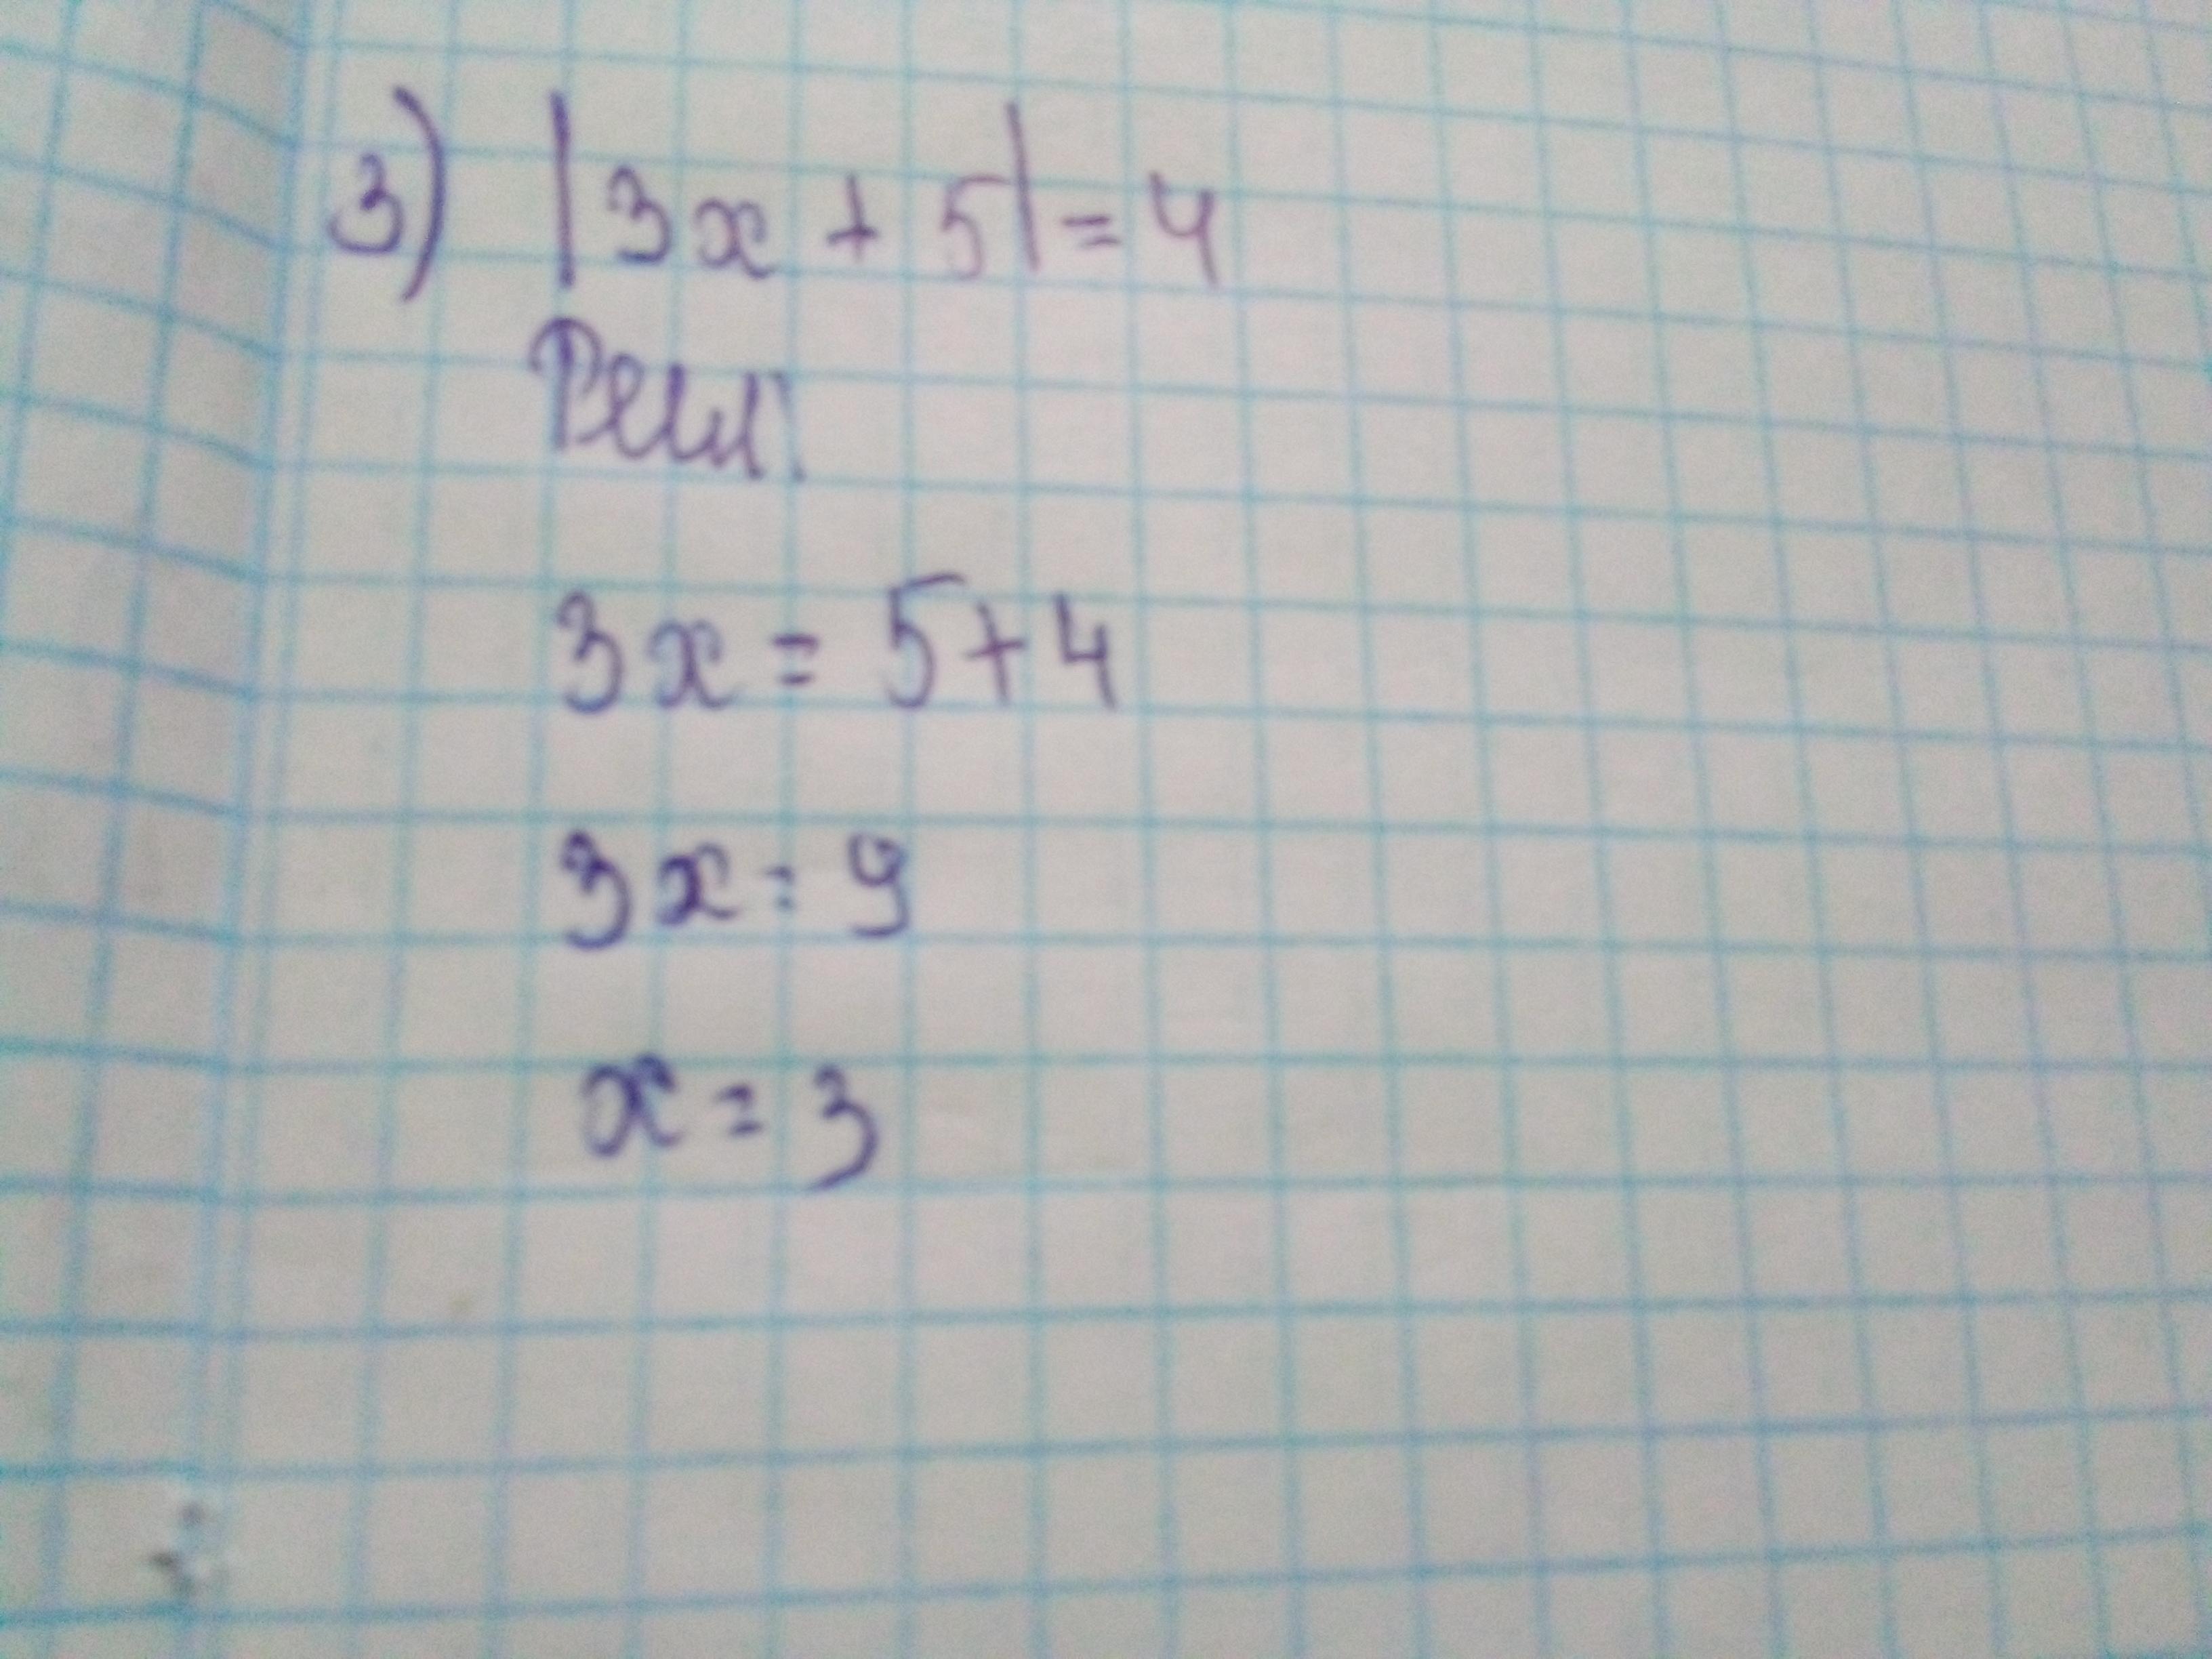 3) |3x + 5| = 4
Реш.
3x = 5+4
3x = 9
x = 3